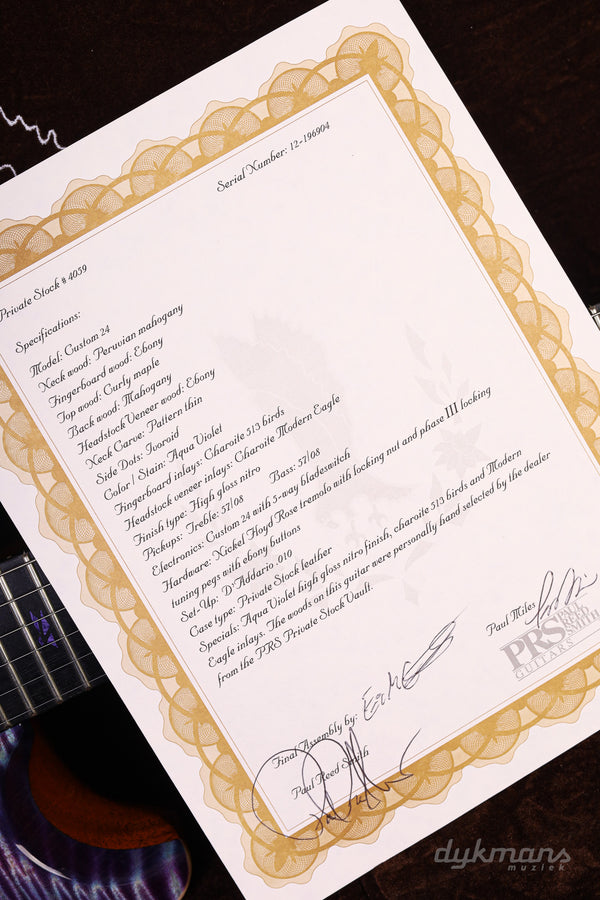 Serial Number: 12-196904
Private Stock # 4059
Specifications:
Model: Custom 24
Neck wood: Peruvian mahogany
Fingerboard wood: Ebony
Top wood: Curly maple
Back wood: Mahogany
Headstock Veneer wood: Ebony
Neck Carve: Pattern thin
Side Dots: Ivoroid
Color / Stain: Aqua Violet
Fingerboard inlays: Charoite 513 birds
Headstock veneer inlays: Charoite Modern Eagle
Finish type: High gloss nitro
Pickups: Treble: 57/08 Bass: 57/08
Electronics: Custom 24 with 5-way bladeswitch
Hardware: Nickel Floyd Rose tremolo with locking nut and phase III locking
tuning pegs with ebony buttons
Set-Up: D'Addario .010
Case type: Private Stock leather
Specials: Aqua Violet high gloss nitro finish, charoite 513 birds and Modern
Eagle inlays. The woods on this guitar were personally hand selected by the dealer
from the PRS Private Stock Vault.
Paul Miles
PRS PAUL REED SMITH
GUITARS
Final Assembly by:
Paul Reed Smith
dykmans
muziek